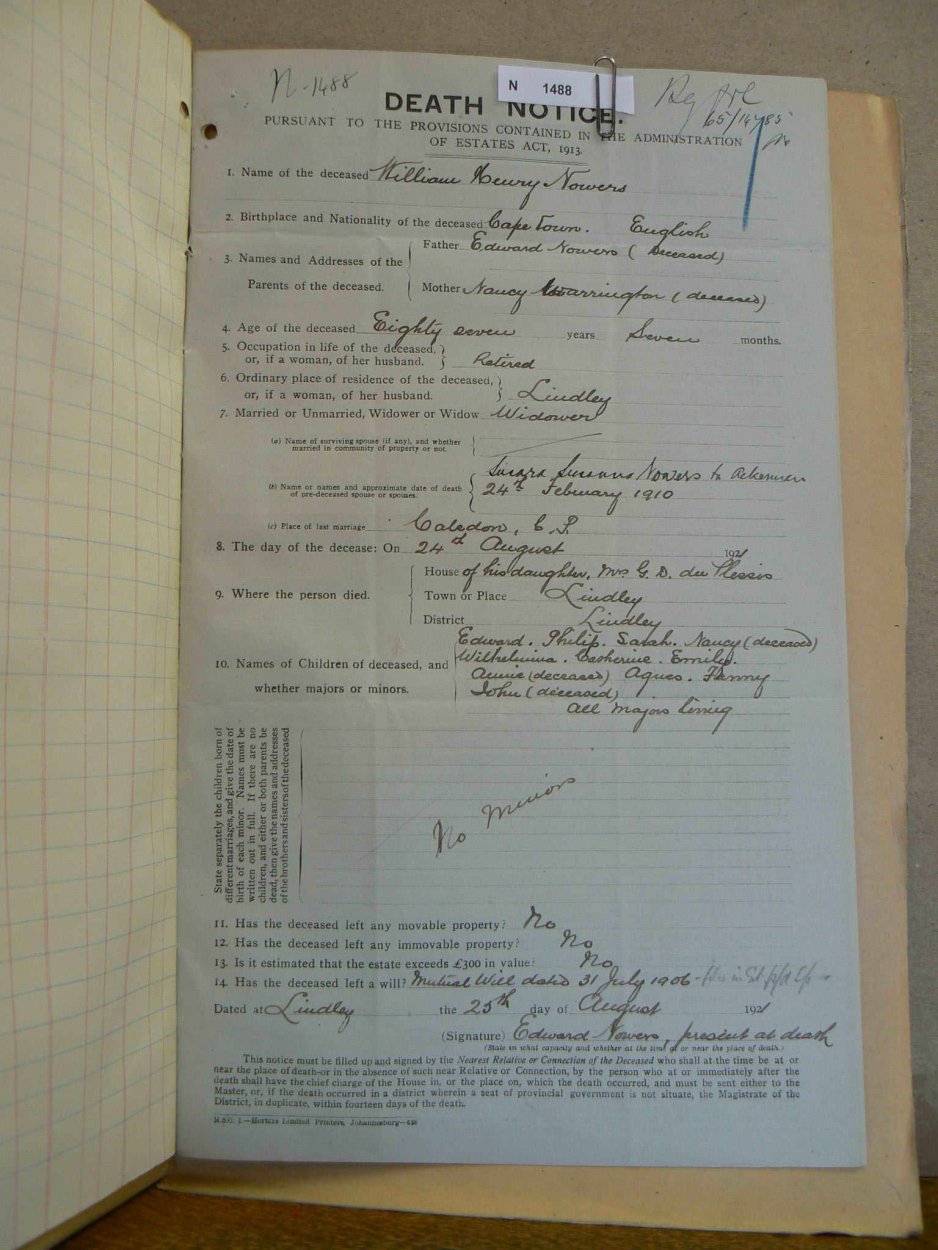 N-1488
N 1488
65/14785
DEATH NOTICE.
PURSUANT TO THE PROVISIONS CONTAINED IN THE ADMINISTRATION
OF ESTATES ACT, 1913.
1. Name of the deceased William Henry Nowers
2. Birthplace and Nationality of the deceased Cape Town. English
3. Names and Addresses of the Parents of the deceased.
Father Edward Nowers (Deceased)
Mother Nancy Warrington (deceased)
4. Age of the deceased Eighty seven years Seven months.
5. Occupation in life of the deceased,
or, if a woman, of her husband. Retired
6. Ordinary place of residence of the deceased,
or, if a woman, of her husband. Lindley
7. Married or Unmarried, Widower or Widow Widower
(a) Name of surviving spouse (if any), and whether
married in community of property or not.
(b) Name or names and approximate date of death
of pre-deceased spouse or spouses.
Susanna Nowers
24th February 1910
(c) Place of last marriage Caledon, C.P.
8. The day of the decease: On 24th August 1921
9. Where the person died.
House of his daughter, Mrs G. D. du Plessis
Town or Place Lindley
District Lindley
10. Names of Children of deceased, and
whether majors or minors.
Edward. Philip. Sarah. Nancy (deceased)
Wilhelmina. Catherine. Emily.
Annie (deceased) Agnes. Fanny
John (deceased)
All Majors living
State separately the children born of
different marriages, and give the date of
birth of each minor. Names must be
written out in full. If there are no
children, and either or both parents be
dead, then give the names and addresses
of the brothers and sisters of the deceased
No minor
11. Has the deceased left any movable property? No
12. Has the deceased left any immovable property? No
13. Is it estimated that the estate exceeds £300 in value? No
14. Has the deceased left a will? Mutual Will dated 31 July 1906
Dated at Lindley the 25th day of August 1921
(Signature) Edward Nowers, present at death
(State in what capacity and whether at the time of or near the place of death.)
This notice must be filled up and signed by the Nearest Relative or Connection of the Deceased who shall at the time be at or
near the place of death-or in the absence of such near Relative or Connection, by the person who at or immediately after the
death shall have the chief charge of the House in, or the place on, which the death occurred, and must be sent either to the
Master, or, if the death occurred in a district wherein a seat of provincial government is not situate, the Magistrate of the
District, in duplicate, within fourteen days of the death.
Hortors Limited Printers, Johannesburg